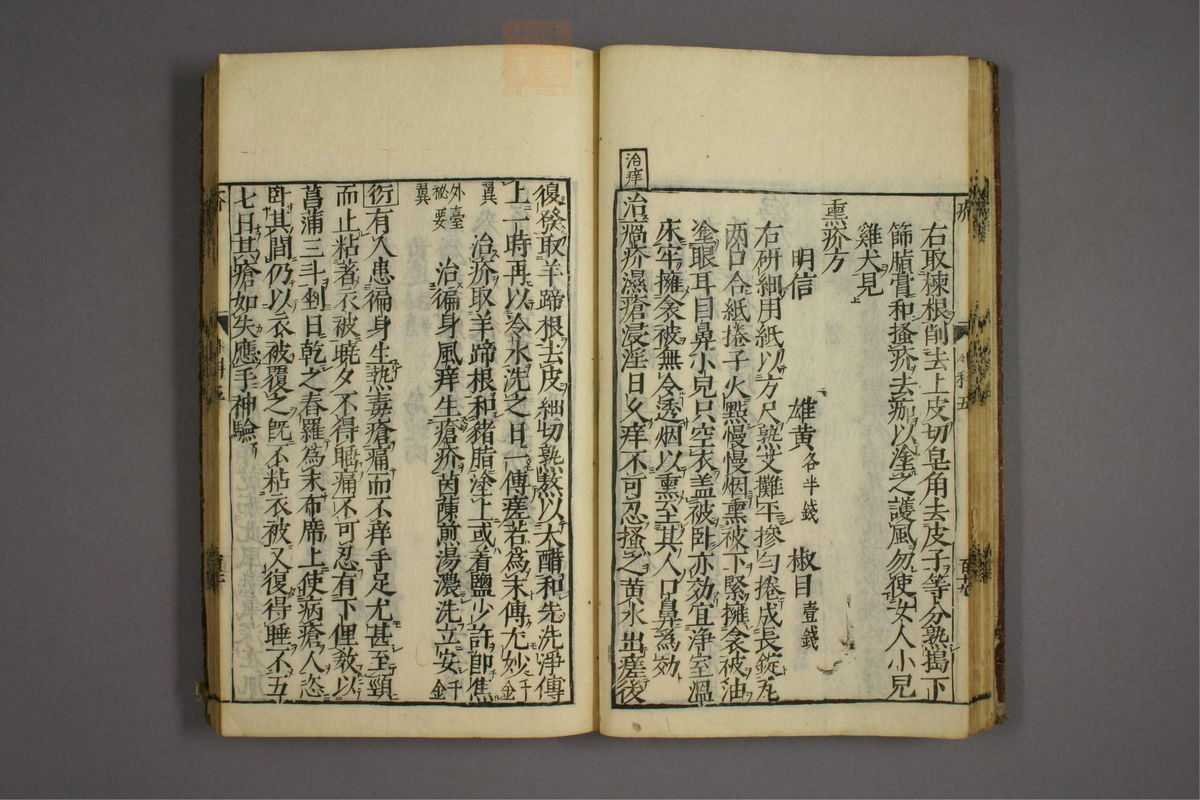 右取楝根削去上皮切皂角去皮子等分熟搗下
篩脂膏和搔疥去痂以塗之護風勿使女人小兒
雞犬見
熏疥方
明信 雄黃各半錢 椒目壹錢
右研細用紙以方尺熟艾攤平摻勻捲成長錠九
兩口合紙捲子火點慢慢烟熏被下緊擁衾被油
塗眼耳目鼻小兒只空衣盖被卧亦効宜净室溫
床牢擁衾被無令透烟以熏至其人口鼻為効
治痒
治㾽疥濕瘡浸淫日久痒不可忍搔之黄水出瘥後
復發取羊蹄根去皮細切熟熬以大醋和先洗淨傅
上一時再以冷水洗之日一傅瘥若為末傅尤妙千金
翼 治疥取羊蹄根和豬脂塗上或着鹽少許即焦
外臺秘要 治徧身風痒生瘡疥茵蔯煎湯濃洗立安千金
翼
衍有人患徧身生熱毒瘡痛而不痒手足尤甚至頸
而止粘著衣被曉夕不得睡痛不可忍有下俚敎以
菖蒲三斗剉日乾之舂羅為末布席上使病瘡人恣
卧其間仍以衣被覆之既不粘衣被又復得睡不五
七日其瘡如失應手神驗